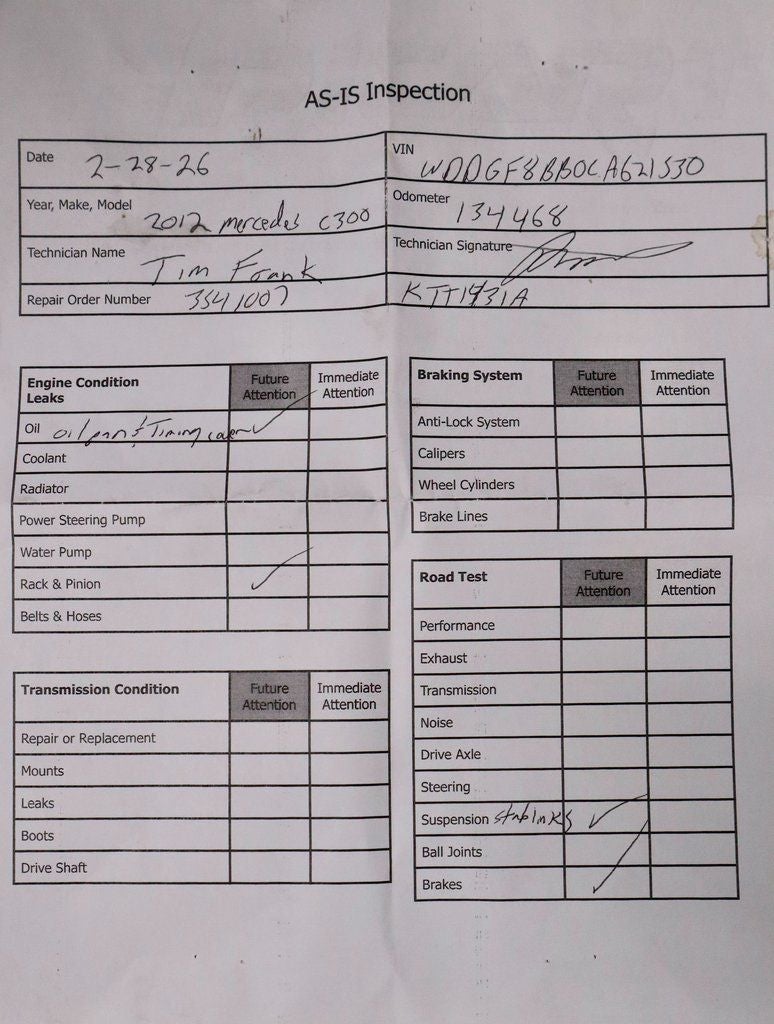 AS-IS Inspection
Date 2-28-26
VIN WDDGF8BB0CA621530
Year, Make, Model 2012 mercedes C300
Odometer 134468
Technician Name Tim Frank
Technician Signature
Repair Order Number 3541007
Engine Condition Leaks Future Attention Immediate Attention
Oil oil pan & Timing cover ✓
Coolant
Radiator
Power Steering Pump
Water Pump
Rack & Pinion ✓
Belts & Hoses
Transmission Condition Future Attention Immediate Attention
Repair or Replacement
Mounts
Leaks
Boots
Drive Shaft
Braking System Future Attention Immediate Attention
Anti-Lock System
Calipers
Wheel Cylinders
Brake Lines
Road Test Future Attention Immediate Attention
Performance
Exhaust
Transmission
Noise
Drive Axle
Steering
Suspension stab links ✓
Ball Joints
Brakes ✓